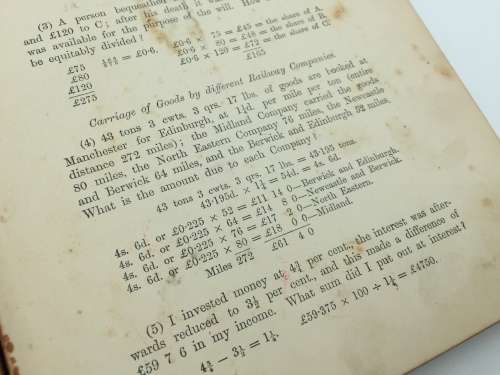 (3) A person bequeathed
and £120 to C; after his death it was
was available for the purpose of the will. How
be equitably divided?
£75
£80
£120
£275
= £0·6.
£0·6 × 75 = £45 = the share of A.
£0·6 × 80 = £48 = the share of B.
£0·6 × 120 = £72 = the share of C.
£165
Carriage of Goods by different Railway Companies.
(4) 43 tons 3 cwts. 3 qrs. 17 lbs. of goods are booked at
Manchester for Edinburgh, at 1¼d. per mile per ton (entire
distance 272 miles); the Midland Company carried the goods
80 miles, the North Eastern Company 76 miles, the Newcastle
and Berwick 64 miles, and the Berwick and Edinburgh 52 miles.
What is the amount due to each Company?
43 tons 3 cwts. 3 qrs. 17 lbs. = 43·195 tons.
43·195d. × 1¼ = 54d. = 4s. 6d.
4s. 6d. or £0·225 × 52 = £11 14 0—Berwick and Edinburgh.
4s. 6d. or £0·225 × 64 = £14 8 0—Newcastle and Berwick.
4s. 6d. or £0·225 × 76 = £17 2 0—North Eastern.
4s. 6d. or £0·225 × 80 = £18 0 0—Midland.
Miles 272 £61 4 0
(5) I invested money at 4¾ per cent., the interest was after-
wards reduced to 3½ per cent., and this made a difference of
£59 7 6 in my income. What sum did I put out at interest?
4¾ − 3½ = 1¼. £59·375 × 100 ÷ 1¼ = £4750.